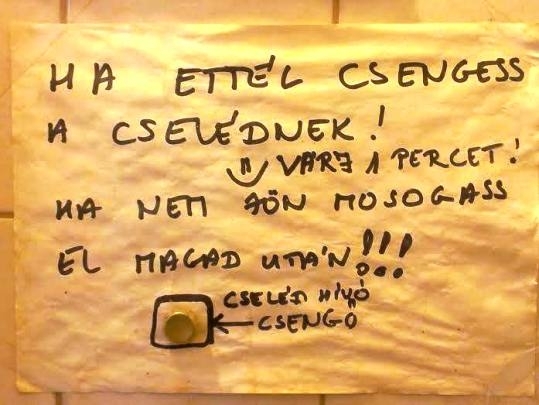 HA ETTÉL CSENGESS
A CSELÉDNEK!
VÁRJ 1 PERCET!
HA NEM JÖN MOSOGASS
EL MAGAD UTÁN!!!
CSELÉD HÍVÓ
CSENGŐ